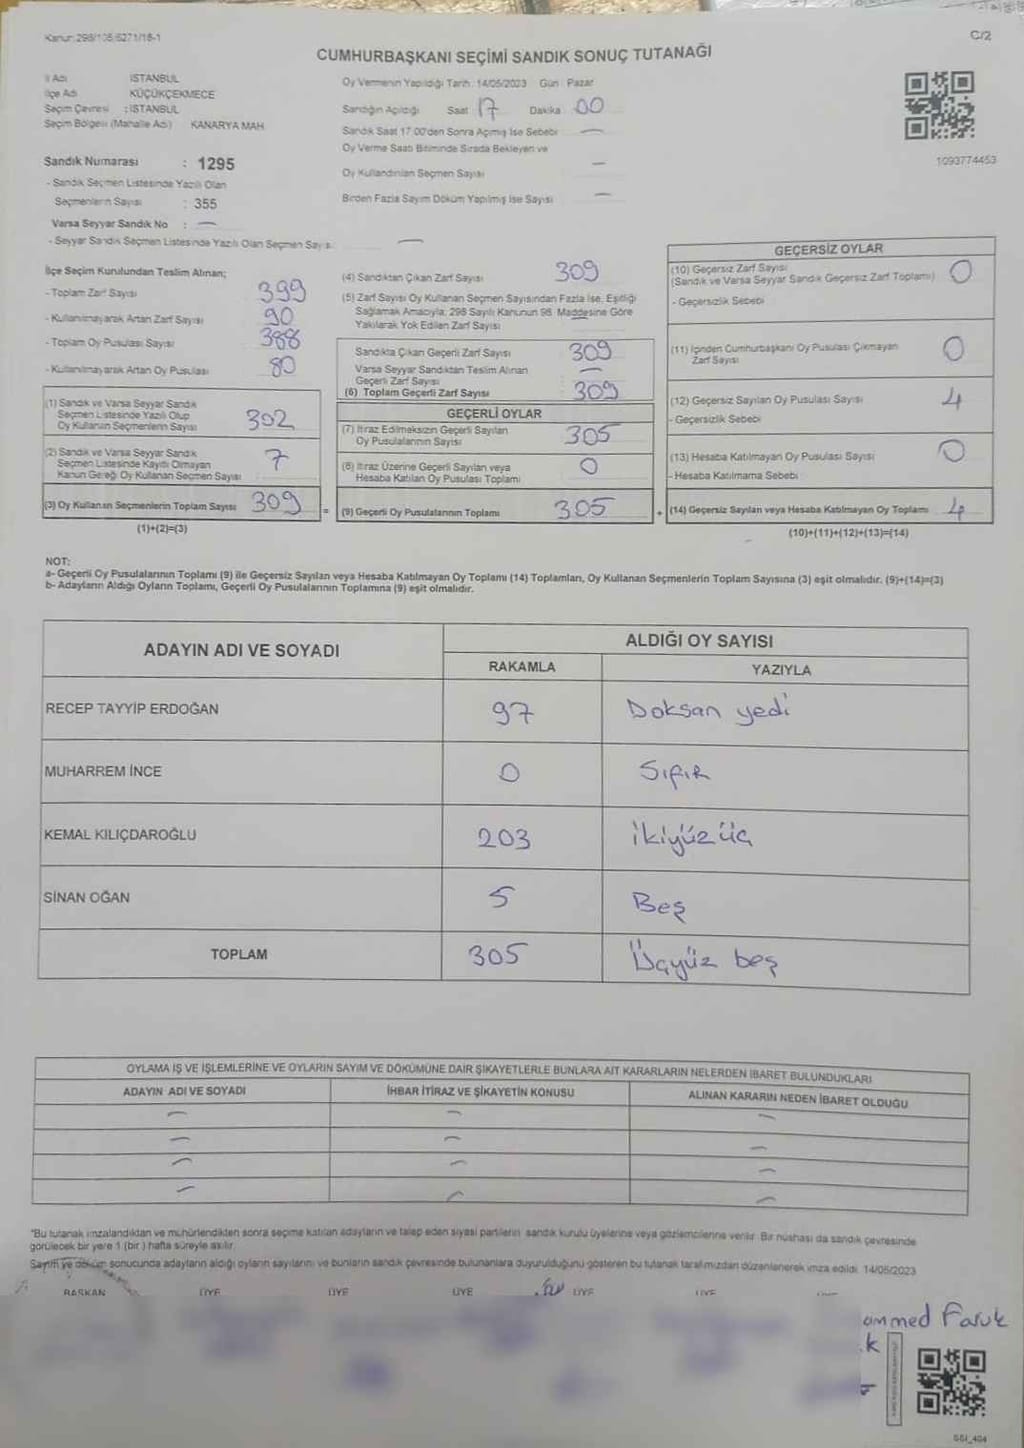 Kanun: 298/135/6271/18-1
C/2
CUMHURBAŞKANI SEÇİMİ SANDIK SONUÇ TUTANAĞI
İl Adı İSTANBUL
İlçe Adı KÜÇÜKÇEKMECE
Seçim Çevresi : İSTANBUL
Seçim Bölgesi (Mahalle Adı) KANARYA MAH.
Sandık Numarası : 1295
- Sandık Seçmen Listesinde Yazılı Olan
Seçmenlerin Sayısı : 355
Varsa Seyyar Sandık No : —
- Seyyar Sandık Seçmen Listesinde Yazılı Olan Seçmen Sayısı —
Oy Vermenin Yapıldığı Tarih: 14/05/2023 Gün: Pazar
Sandığın Açıldığı Saat 17 Dakika 00
Sandık Saat 17.00'den Sonra Açılmış İse Sebebi —
Oy Verme Saati Bitiminde Sırada Bekleyen ve
Oy Kullandırılan Seçmen Sayısı —
Birden Fazla Sayım Döküm Yapılmış İse Sayısı —
1093774453
İlçe Seçim Kurulundan Teslim Alınan;
- Toplam Zarf Sayısı 399
- Kullanılmayarak Artan Zarf Sayısı 90
- Toplam Oy Pusulası Sayısı 388
- Kullanılmayarak Artan Oy Pusulası 80
(1) Sandık ve Varsa Seyyar Sandık
Seçmen Listesinde Yazılı Olup
Oy Kullanan Seçmenlerin Sayısı 302
(2) Sandık ve Varsa Seyyar Sandık
Seçmen Listesinde Kaydı Olmayan
Kanun Gereği Oy Kullanan Seçmen Sayısı 7
(3) Oy Kullanan Seçmenlerin Toplam Sayısı 309
(1)+(2)=(3)
(4) Sandıktan Çıkan Zarf Sayısı 309
(5) Zarf Sayısı Oy Kullanan Seçmen Sayısından Fazla İse, Eşitliği
Sağlamak Amacıyla, 298 Sayılı Kanunun 98. Maddesine Göre
Yakılarak Yok Edilen Zarf Sayısı
Sandıkta Çıkan Geçerli Zarf Sayısı 309
Varsa Seyyar Sandıktan Teslim Alınan
Geçerli Zarf Sayısı —
(6) Toplam Geçerli Zarf Sayısı 309
GEÇERLİ OYLAR
(7) İtiraz Edilmeksizin Geçerli Sayılan
Oy Pusulalarının Sayısı 305
(8) İtiraz Üzerine Geçerli Sayılan veya
Hesaba Katılan Oy Pusulası Toplamı 0
= (9) Geçerli Oy Pusulalarının Toplamı 305
GEÇERSİZ OYLAR
(10) Geçersiz Zarf Sayısı 0
(Sandık ve Varsa Seyyar Sandık Geçersiz Zarf Toplamı)
- Geçersizlik Sebebi
(11) İçinden Cumhurbaşkanı Oy Pusulası Çıkmayan 0
Zarf Sayısı
(12) Geçersiz Sayılan Oy Pusulası Sayısı 4
- Geçersizlik Sebebi
(13) Hesaba Katılmayan Oy Pusulası Sayısı 0
- Hesaba Katılmama Sebebi
+ (14) Geçersiz Sayılan veya Hesaba Katılmayan Oy Toplamı 4
(10)+(11)+(12)+(13)=(14)
NOT:
a- Geçerli Oy Pusulalarının Toplamı (9) ile Geçersiz Sayılan veya Hesaba Katılmayan Oy Toplamı (14) Toplamları, Oy Kullanan Seçmenlerin Toplam Sayısına (3) eşit olmalıdır. (9)+(14)=(3)
b- Adayların Aldığı Oyların Toplamı, Geçerli Oy Pusulalarının Toplamına (9) eşit olmalıdır.
ADAYIN ADI VE SOYADI ALDIĞI OY SAYISI
RAKAMLA YAZIYLA
RECEP TAYYİP ERDOĞAN 97 Doksan yedi
MUHARREM İNCE 0 Sıfır
KEMAL KILIÇDAROĞLU 203 ikiyüz üç
SİNAN OĞAN 5 Beş
TOPLAM 305 Üçyüz beş
OYLAMA İŞ VE İŞLEMLERİNE VE OYLARIN SAYIM VE DÖKÜMÜNE DAİR ŞİKAYETLERLE BUNLARA AİT KARARLARIN NELERDEN İBARET BULUNDUKLARI
ADAYIN ADI VE SOYADI İHBAR İTİRAZ VE ŞİKAYETİN KONUSU ALINAN KARARIN NEDEN İBARET OLDUĞU
— — —
— — —
— — —
— — —
"Bu tutanak imzalandıktan ve mühürlendikten sonra seçime katılan adayların ve talep eden siyasi partilerin sandık kurulu üyelerine veya gözlemcilerine verilir. Bir nüshası da sandık çevresinde
görülecek bir yere 1 (bir) hafta süreyle asılır.
Sayım ve döküm sonucunda adayların aldığı oyların sayılarını ve bunların sandık çevresinde bulunanlara duyurulduğunu gösteren bu tutanak tarafımızdan düzenlenerek imza edildi. 14/05/2023
BAŞKAN ÜYE ÜYE ÜYE ÜYE ÜYE
ammed Faruk
k
SSİ_404